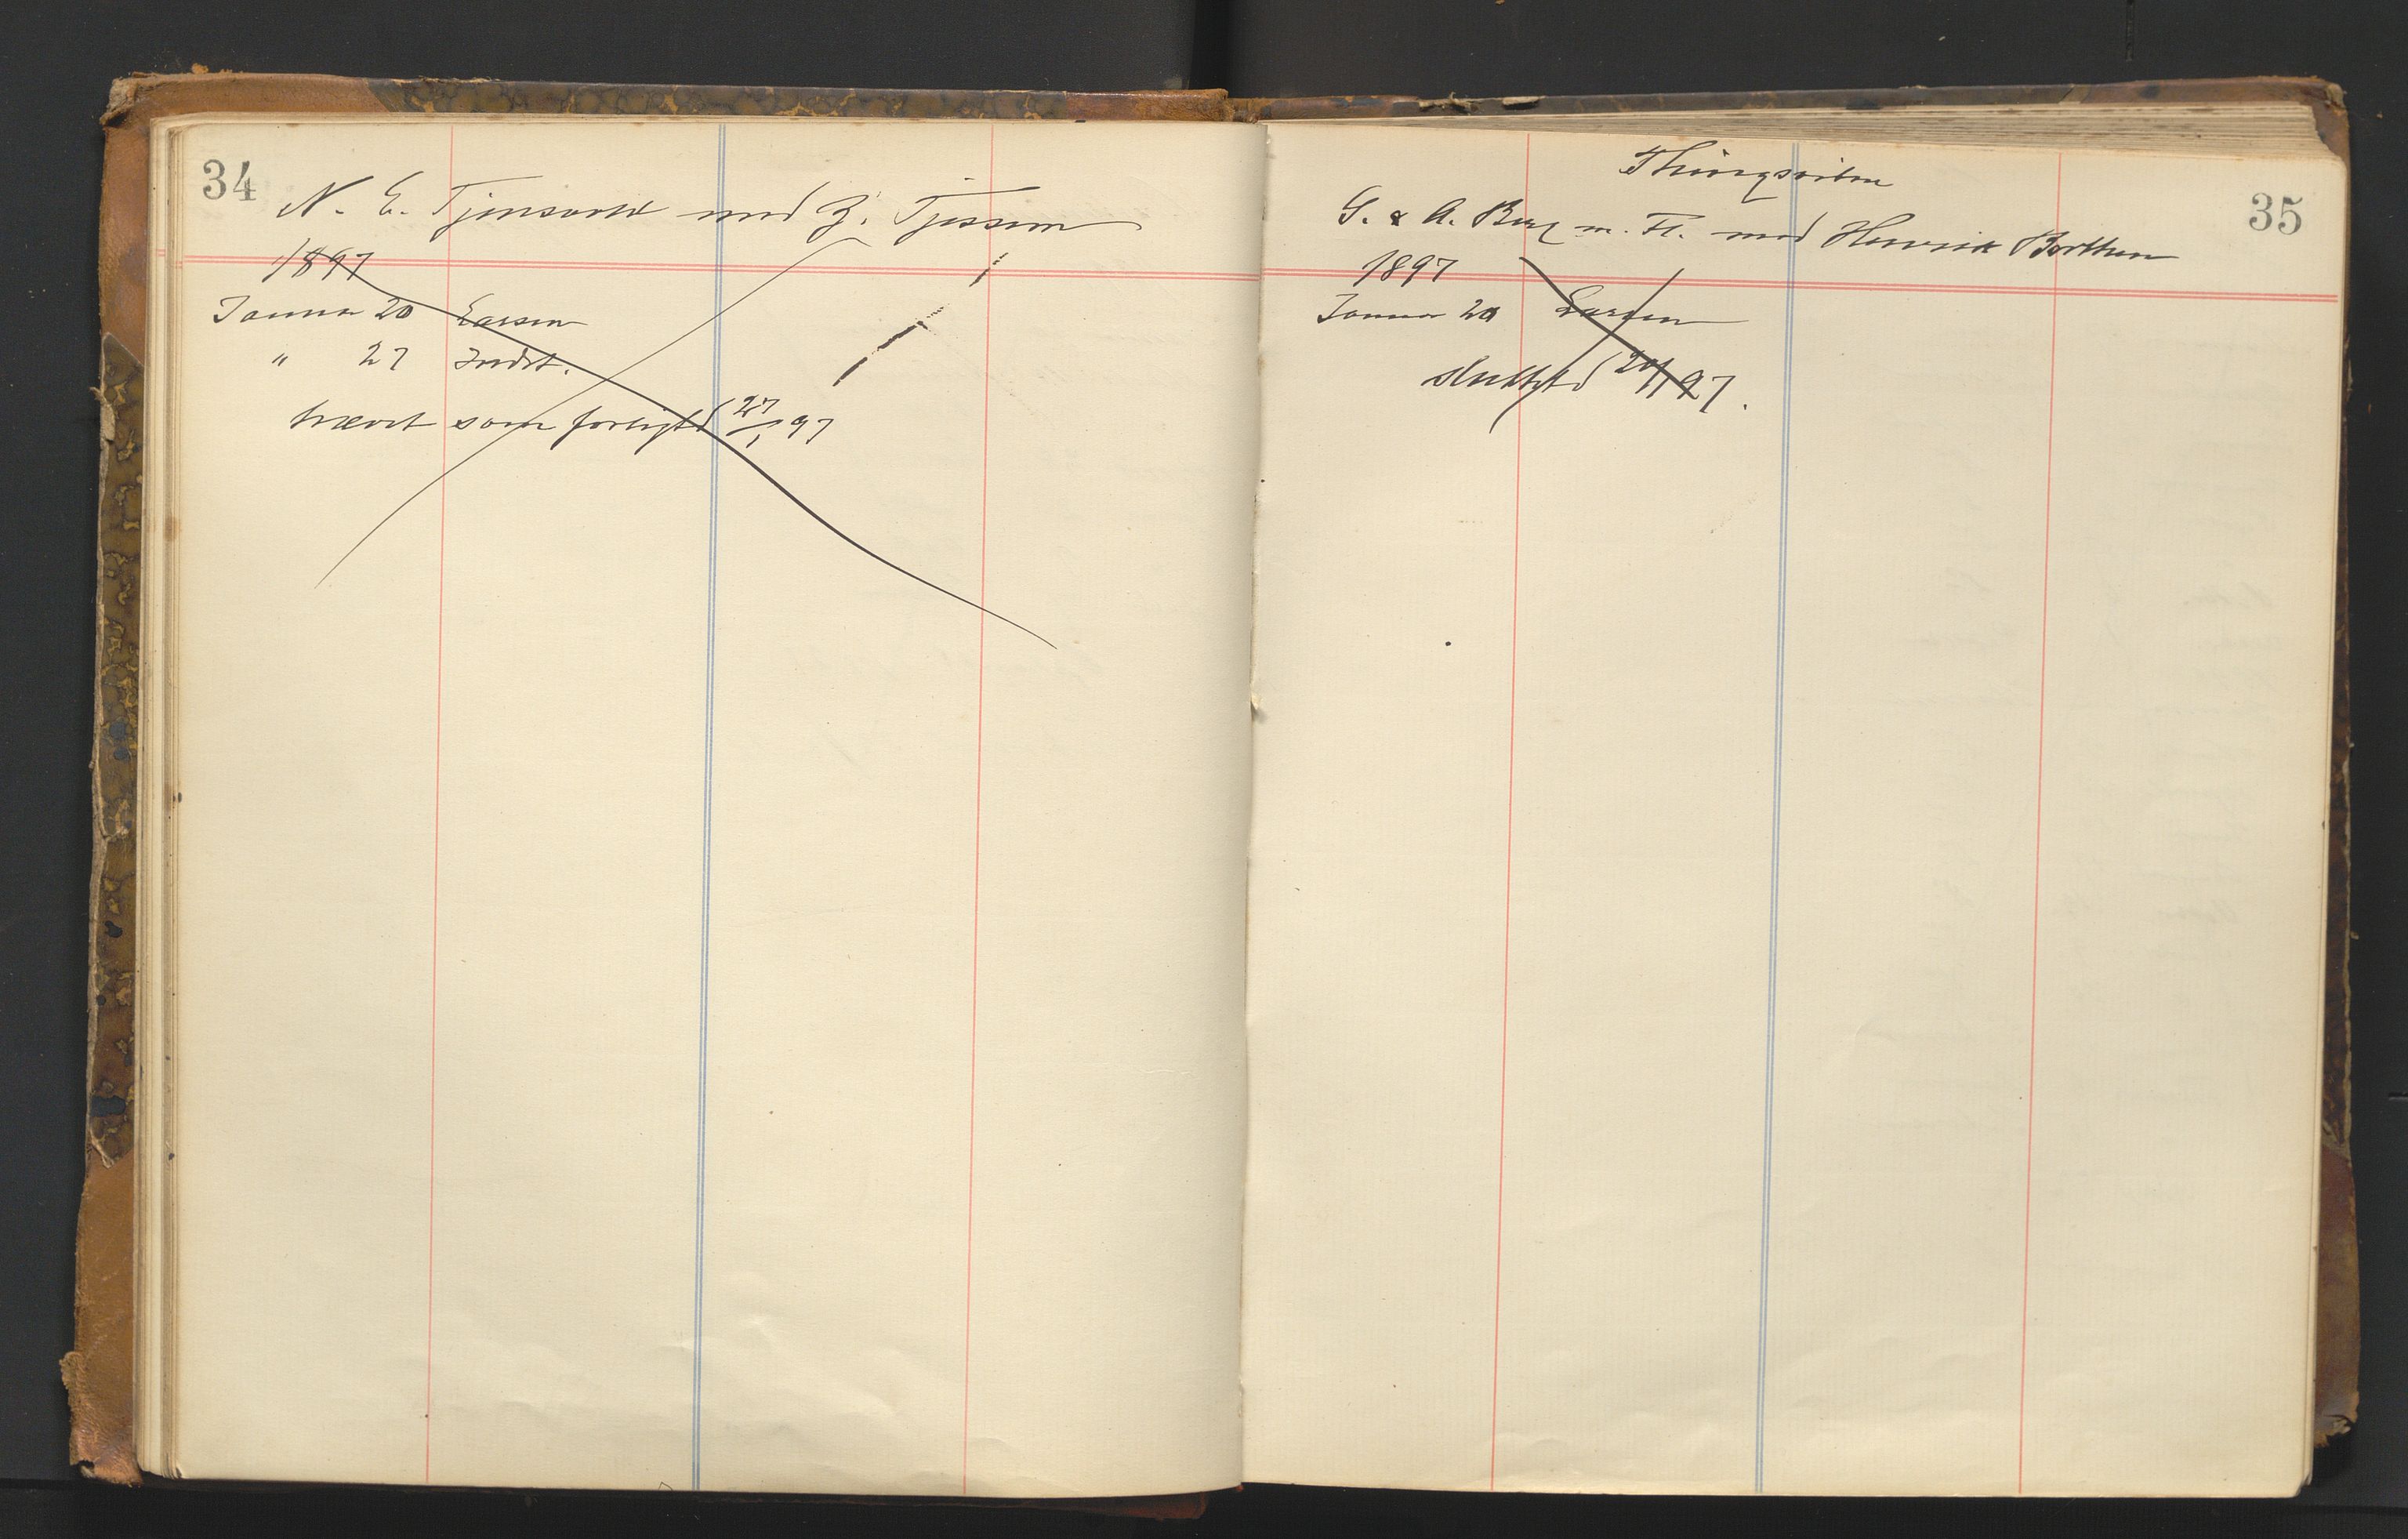 34
N. E. Tjensvold mod Z. Tjessem
1897
Januar 20 Larsen
" 27 Indst.
hævet som forligtd 27/1 97
35
Thingsviten
G. & A. Berg m. Fl. mod Henrik Borthen
1897
Januar 20 Larsen
sluttetd 20/1 97.